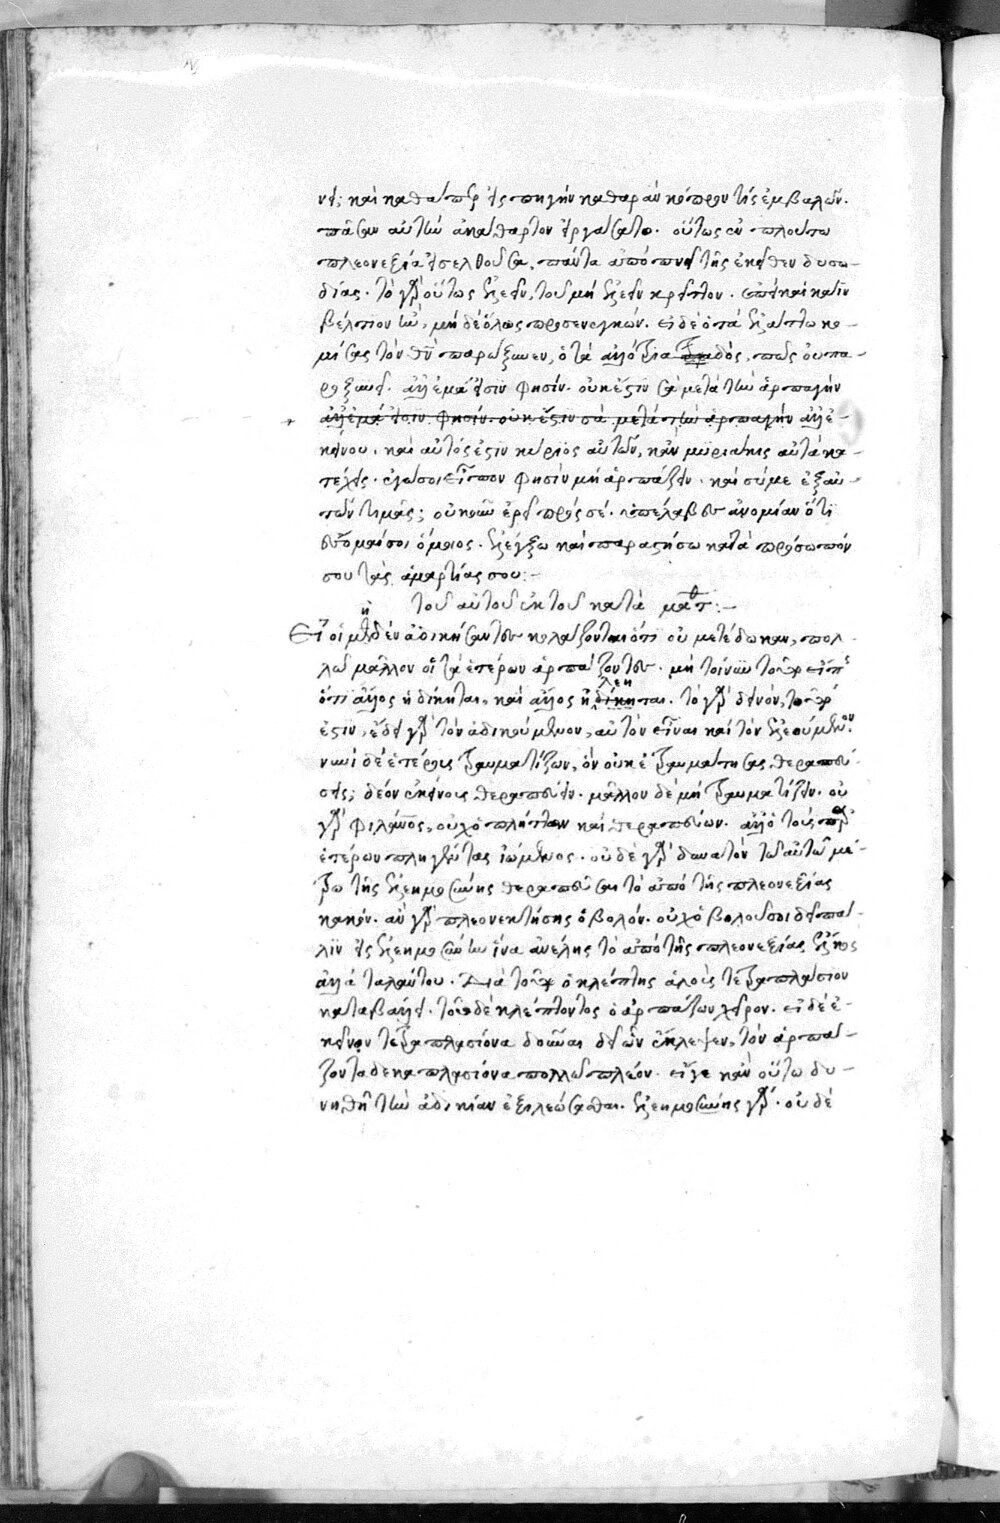 νει; καὶ καθάπερ εἰς πηγὴν καθαρὰν κόπρον τίς ἐμβαλὼν.
πᾶσαν αὐτὴν ἀκάθαρτον εἰργάσατο. οὕτως ἐν πλούτω
πλεονεξία εἰσελθοῦσα, πάντα ἀπόπνεῖ τῆς ἐκεῖθεν δυσω-
δίας. τὸ γὰρ οὕτως ἐλεεῖν, τοῦ μὴ ἐλεεῖν κρεῖττον. ἐπεὶ καὶ κάϊν
βέλτιον ἦν, μὴ δὲ ὅλως προσενεγκών. εἰ δὲ ὁ τὰ ἐλάττω κο-
μίσας τὸν θν παρώξυνεν, ὁ τὰ ἀλλότρια διδὸς, πῶς οὐ πα-
ροξυνεῖ. ἀλλ' ἐμά εἰσιν φησίν. οὐκ ἔστιν σὰ μετὰ τὴν ἁρπαγὴν
ἀλλ' ἐμά εἰσιν φησίν. οὐκ ἔστιν σὰ μετὰ τὴν ἁρπαγὴν ἀλλ' ἐ-
κείνου. καὶ αὐτός ἐστιν κύριος αὐτῶν, κἂν μυριάκις αὐτὰ κα-
τέχεις. ἐγώ σοι εἶπον φησὶν μὴ ἁρπάζειν. καὶ σύ με ἐξ αὐ-
τῶν τιμᾶς; οὐκοῦν ἐρεῖ πρός σέ. ὑπέλαβες ἀνομίαν ὅτι
ἔσομαί σοι ὅμοιος. ἐλέγξω καὶ παραστήσω κατὰ πρόσωπόν
σου τὰς ἁμαρτίας σου:-
τοῦ αὐτοῦ ἐκ τοῦ κατὰ ματθ:-
Εἰ οἱ μηδὲν ἀδικήσαντες κολάζονται ὅτι οὐ μετέδωκαν, πολ-
λῶ μᾶλλον οἱ τὰ ἑτέρων ἁρπάζοντες. μὴ τοίνυν τοῦτο εἴπης
ὅτι ἄλλος ἠδίκηται, καὶ ἄλλος ἠλέηται. τὸ γὰρ δεινόν, τοῦτό
ἐστιν, ἔδει γὰρ τὸν ἀδικούμενον, αὐτὸν εἶναι καὶ τὸν ἐλεούμενον.
νυνὶ δὲ ἑτέρους τραυματίζων, ὃν οὐκ ἐτραυμάτισας, θεραπεύ-
εις; δέον ἐκείνους θεραπεύειν. μᾶλλον δὲ μὴ τραυματίζειν. οὐ
γὰρ φιλάνος, οὐχ ὁ πλήττων καὶ θεραπεύων. ἀλλ' ὁ τοὺς παρ'
ἑτέρων πληγέντας ἰώμενος. οὐδὲ γὰρ δυνατὸν τῶ αὐτῶ μέ-
τρω τῆς ἐλεημοσύνης θεραπεῦσαι τὸ ἀπὸ τῆς πλεονεξίας
κακόν. ἂν γὰρ πλεονεκτήσης ὀβολόν. οὐχ ὀβολοῦ σοι δεῖ πά-
λιν εἰς ἐλεημοσύνην ἵνα ἀνέλης τὸ ἀπὸ τῆς πλεονεξίας ἕλκος
ἀλλὰ ταλάντου. Διὰ τοῦτο ὁ κλέπτης ἁλοὺς τετραπλάσιον
καταβάλλει. τοῦ δὲ κλέπτοντος ὁ ἁρπάζων χείρων. εἰ δὲ ἐ-
κεῖνον τετραπλασίονα δοῦναι δεῖ ὧν ἔκλεψεν, τὸν ἁρπά-
ζοντα δεκαπλασίονα πολλῶ πλέον. εἴγε κἂν οὕτω δυ-
νηθῆ τὴν ἀδικίαν ἐξιλεώσασθαι. ἐλεημοσύνης γὰρ. οὐδὲ